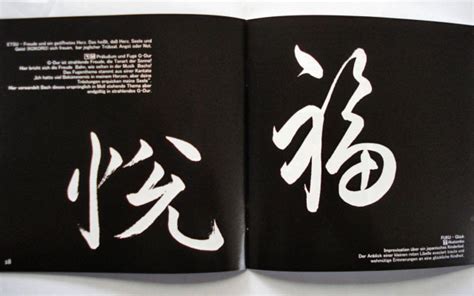 ETSU - Freude und ein geöffnetes Herz. Das heißt, daß Herz, Seele und
Geist (KOKORO) sich freuen, bar jeglicher Trübsal, Angst oder Not.
Präludium und Fuge G-Dur
G-Dur ist strahlende Freude, die Tonart der Sonne!
Hier bricht sich die Freude Bahn, wie selten in der Musik Bachs!
Das Fugenthema stammt aus einer Kantate
"Ich hatte viel Bekümmernis in meinem Herzen, aber deine
Tröstungen erquicken meine Seele".
Hier verwandelt Bach dieses ursprünglich in Moll stehende Thema aber
endgültig in strahlendes G-Dur.
悦
28
福
FUKU - Glück
Improvisation über ein japanisches Kinderlied.
Der Anblick einer kleinen roten Libelle evoziert traute und
wehmütige Erinnerungen an eine glückliche Kindheit.